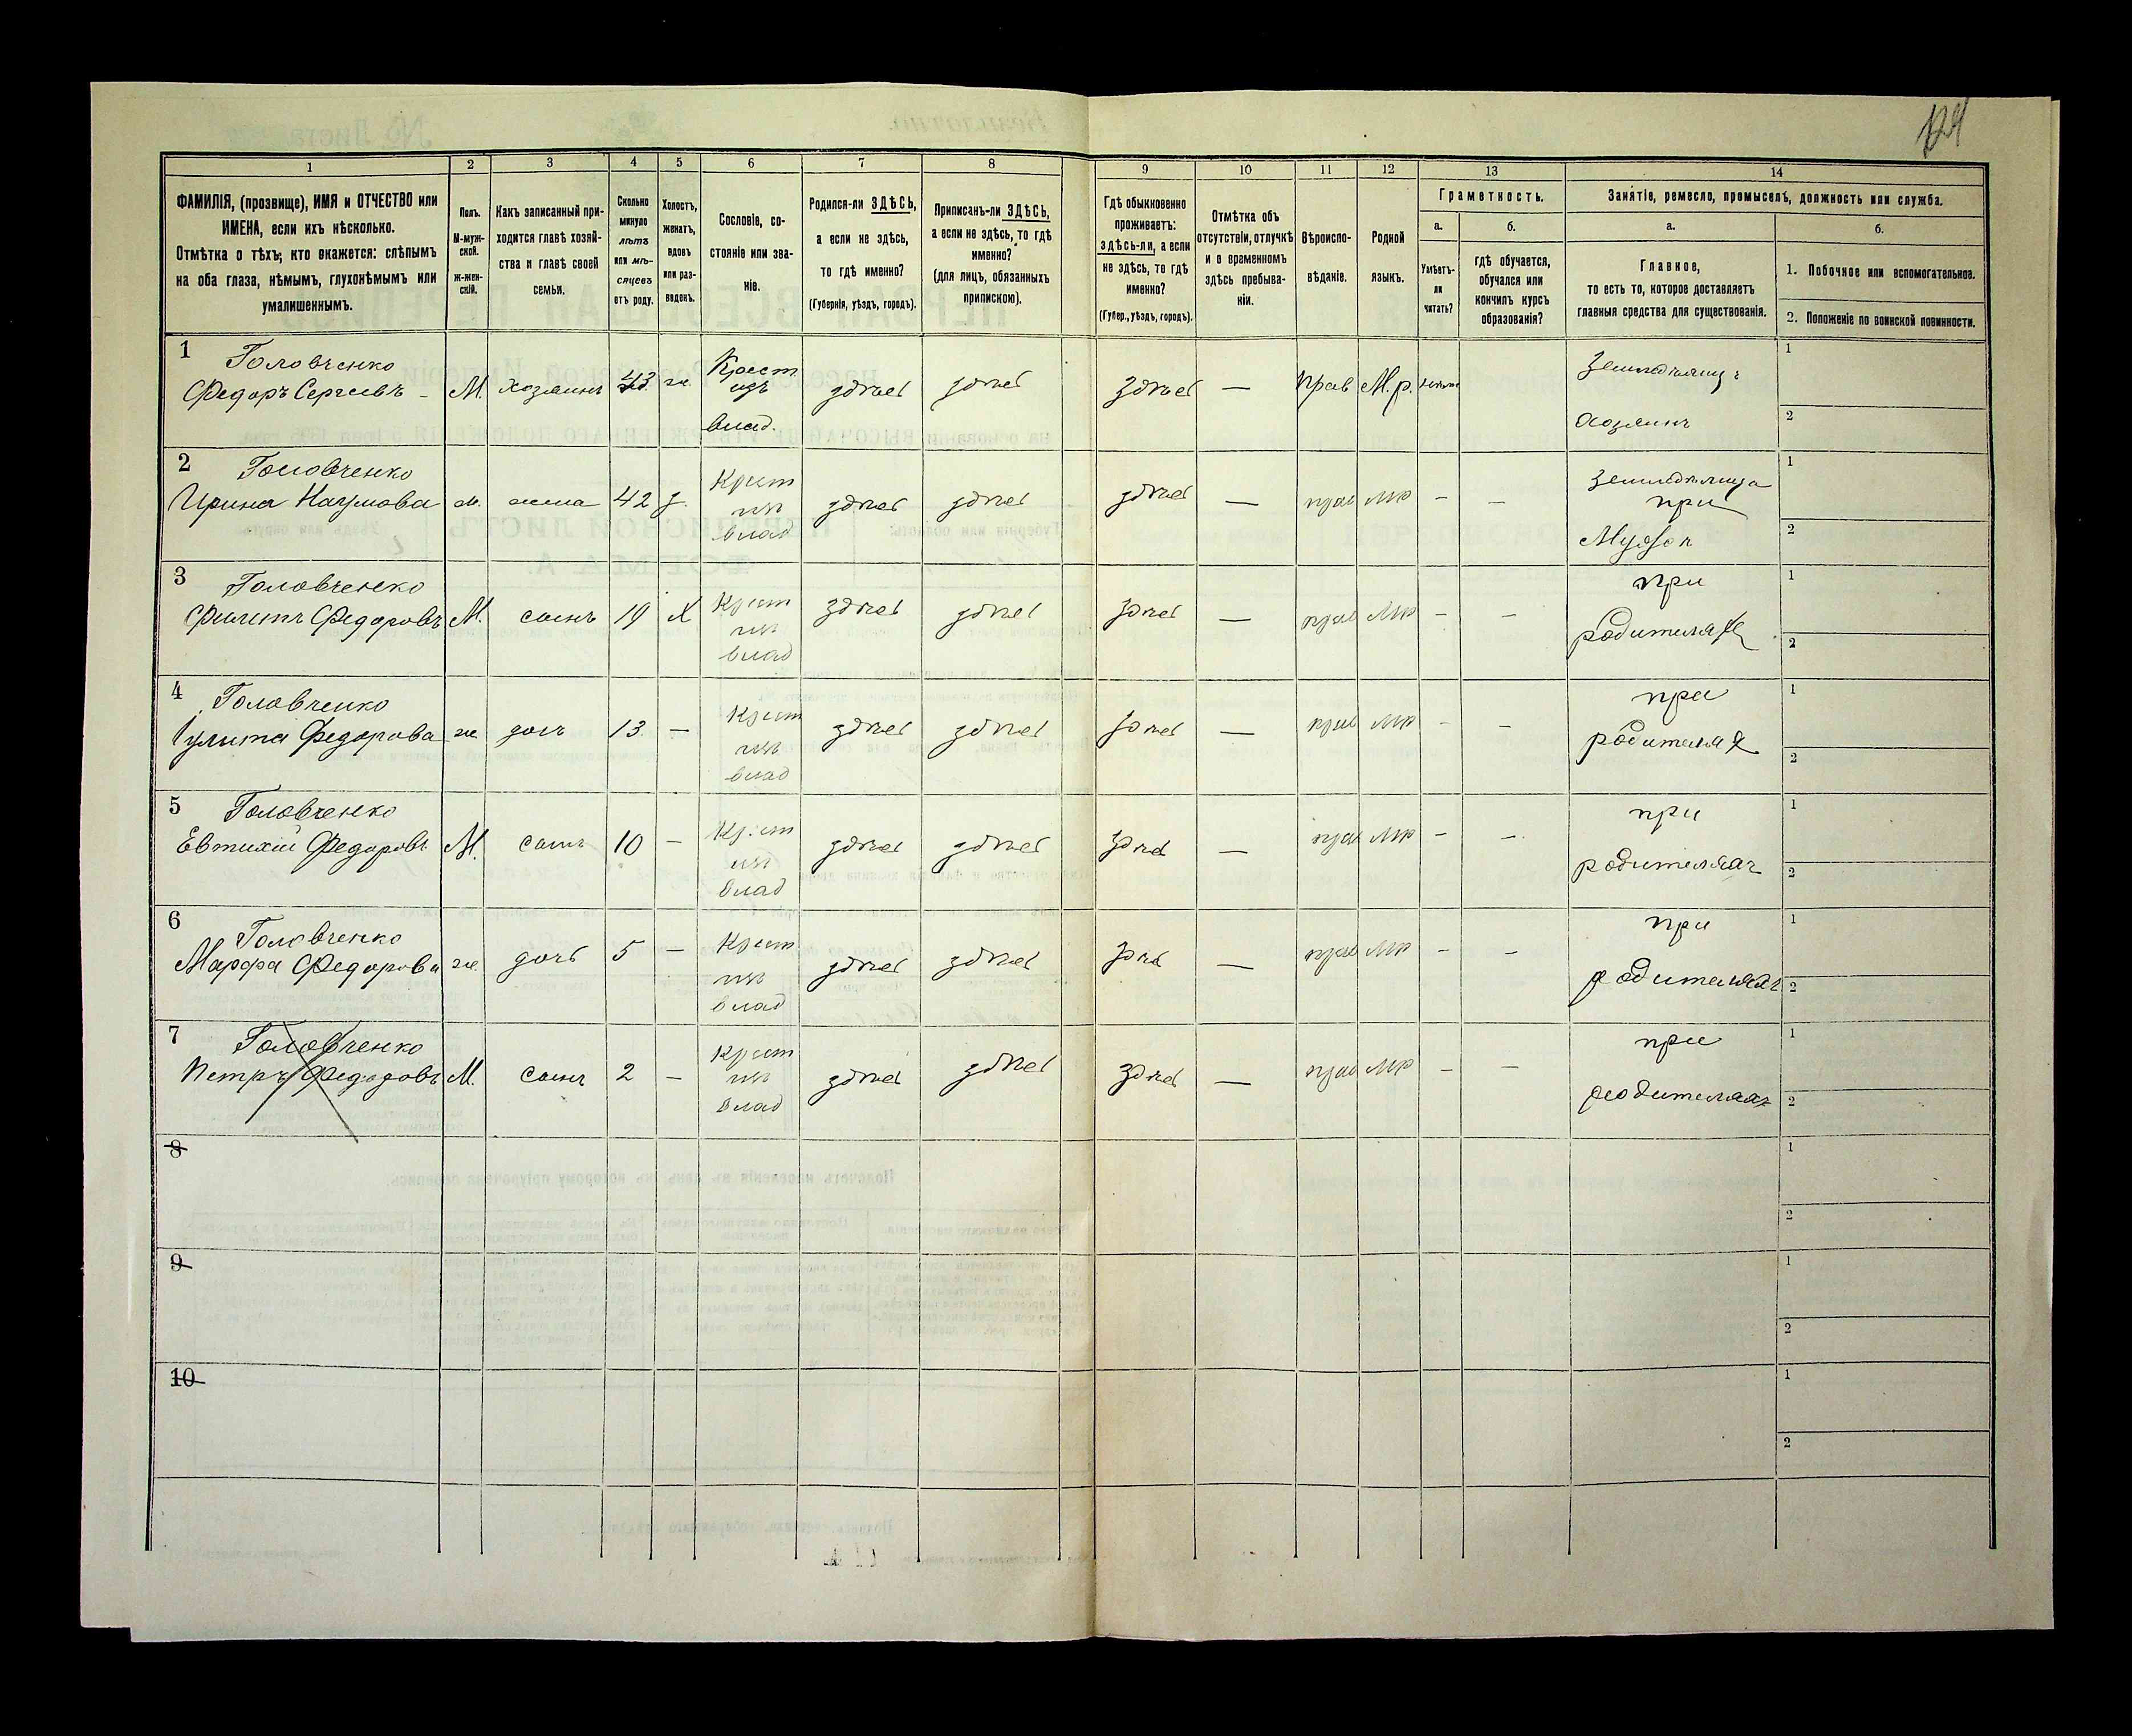 124
1 2 3 4 5 6 7 8 9 10 11 12 13 14
ФАМИЛІЯ, (прозвище), ИМЯ и ОТЧЕСТВО или
ИМЕНА, если ихъ нѣсколько.
Отмѣтка о тѣхъ, кто окажется: слѣпымъ
на оба глаза, нѣмымъ, глухонѣмымъ или
умалишеннымъ.
Полъ.
М-муж-
ской.
ж-жен-
скій.
Какъ записанный при-
ходится главѣ хозяй-
ства и главѣ своей
семьи.
Сколько
минуло
лѣтъ
или мѣ-
сяцевъ
отъ роду.
Холостъ,
женатъ,
вдовъ
или раз-
веденъ.
Сословіе, со-
стояніе или зва-
ніе.
Родился-ли ЗДѢСЬ,
а если не здѣсь,
то гдѣ именно?
(Губернія, уѣздъ, городъ).
Приписанъ-ли ЗДѢСЬ,
а если не здѣсь, то гдѣ
именно?
(для лицъ, обязанныхъ
припискою).
Гдѣ обыкновенно
проживаетъ:
здѣсь-ли, а если
не здѣсь, то гдѣ
именно?
(Губер., уѣздъ, городъ).
Отмѣтка объ
отсутствіи, отлучкѣ
и о временномъ
здѣсь пребыва-
ніи.
Вѣроиспо-
вѣданіе.
Родной
языкъ.
Грамотность.
а.
Умѣетъ-
ли
читать?
б.
гдѣ обучается,
обучался или
кончилъ курсъ
образованія?
Занятіе, ремесло, промыселъ, должность или служба.
а.
Главное,
то есть то, которое доставляетъ
главныя средства для существованія.
б.
1. Побочное или вспомогательное.
2. Положеніе по воинской повинности.
1 Головченко
Федоръ Сергеевъ М. хозяинъ 43 ж Крест. изъ влад. здѣсь здѣсь здѣсь — прав М.р.
Хозяинъ
1
2
2 Головченко
Ирина Наумова ж. жена 42 Крест изъ влад здѣсь здѣсь здѣсь — прав мр — —
при
1
2
3 Головченко
Федоровъ М. сынъ 19 Х Крест изъ влад здѣсь здѣсь здѣсь — прав мр — —
при
родителях
1
2
4 Головченко
Улита Федорова ж дочь 13 — Крест изъ влад здѣсь здѣсь здѣсь — прав мр — —
при
родителях
1
2
5 Головченко
Евтихий Федоровъ М. сынъ 10 — Крест изъ влад здѣсь здѣсь здѣсь — прав мр — —
при
родителяхъ
1
2
6 Головченко
Марфа Федорова ж. дочь 5 — Крест изъ влад здѣсь здѣсь здѣсь — прав мр — —
при
родителяхъ
1
2
7 Головченко
Петръ Федоровъ М. сынъ 2 — Крест изъ влад здѣсь здѣсь здѣсь — прав мр — —
при
родителяхъ
1
2
8
1
2
9
1
2
10
1
2